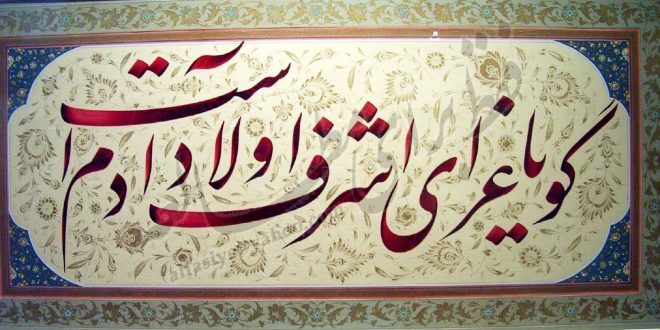 گویا عزای اشرف اولاد آدم است